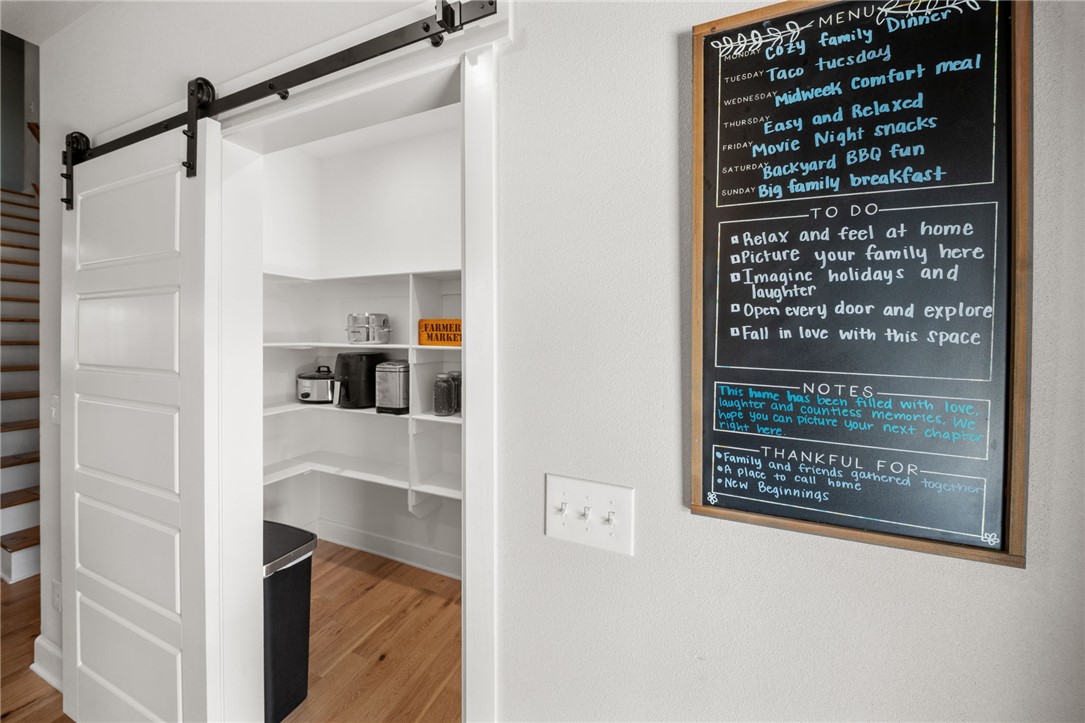 MENU
MONDAY Cozy family Dinner
TUESDAY Taco tuesday
WEDNESDAY Midweek Comfort meal
THURSDAY Easy and Relaxed
FRIDAY Movie Night snacks
SATURDAY Backyard BBQ fun
SUNDAY Big family breakfast
TO DO
Relax and feel at home
Picture your family here
Imagine holidays and
laughter
Open every door and explore
Fall in love with this space
NOTES
This home has been filled with love,
laughter and countless memories. We
hope you can picture your next chapter
right here.
THANKFUL FOR
• Family and friends gathered together
• A place to call home
• New Beginnings
FARMERS
MARKET